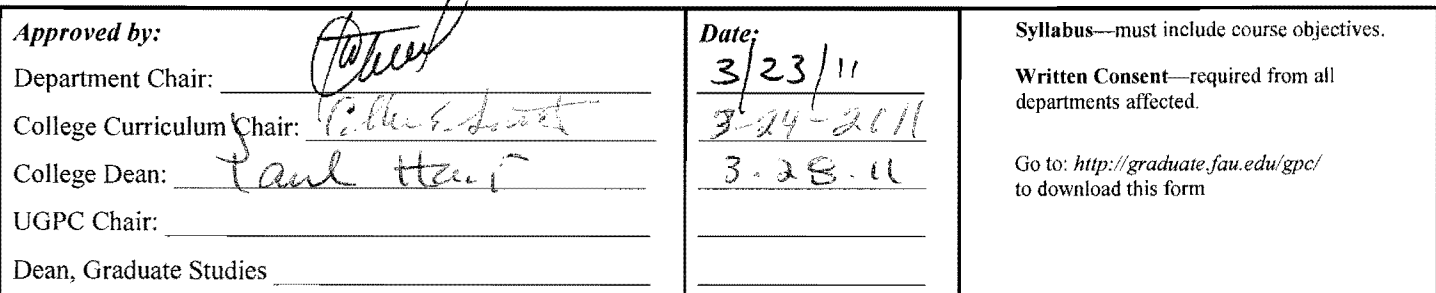 Approved by:
Department Chair:
College Curriculum Chair:
College Dean: Paul
UGPC Chair:
Dean, Graduate Studies
Date:
3/23/11
3-24-2011
3.28.11
Syllabus—must include course objectives.
Written Consent—required from all
departments affected.
Go to: http://graduate.fau.edu/gpc/
to download this form